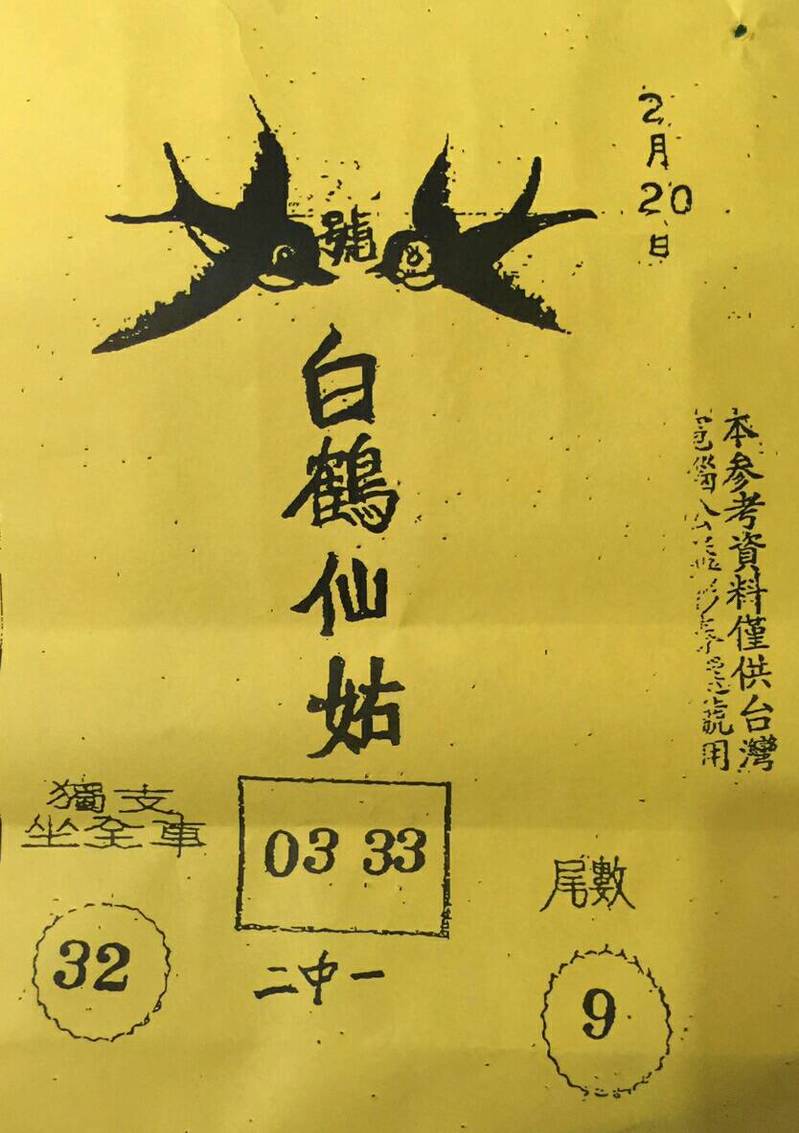 2月20日
號
白鶴仙姑
本參考資料僅供台灣
號用
獨支
坐全車
32
03 33
二中一
尾數
9